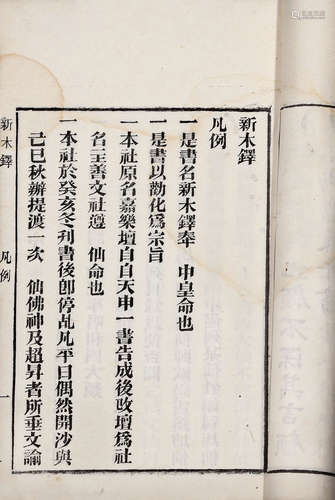 新木鐸
凡例
一是書名新木鐸奉　申皇命也
一是書以勸化爲宗言
一本社原名嘉樂壇自自天申一書告成後改壇爲社
名至善文社遵　仙命也
一本社於癸亥冬刋書後卽停乩凡平日偶然開沙與
己巳秋辦提渡一次　仙佛神及超昇者所垂文論
新木鐸　凡例　一